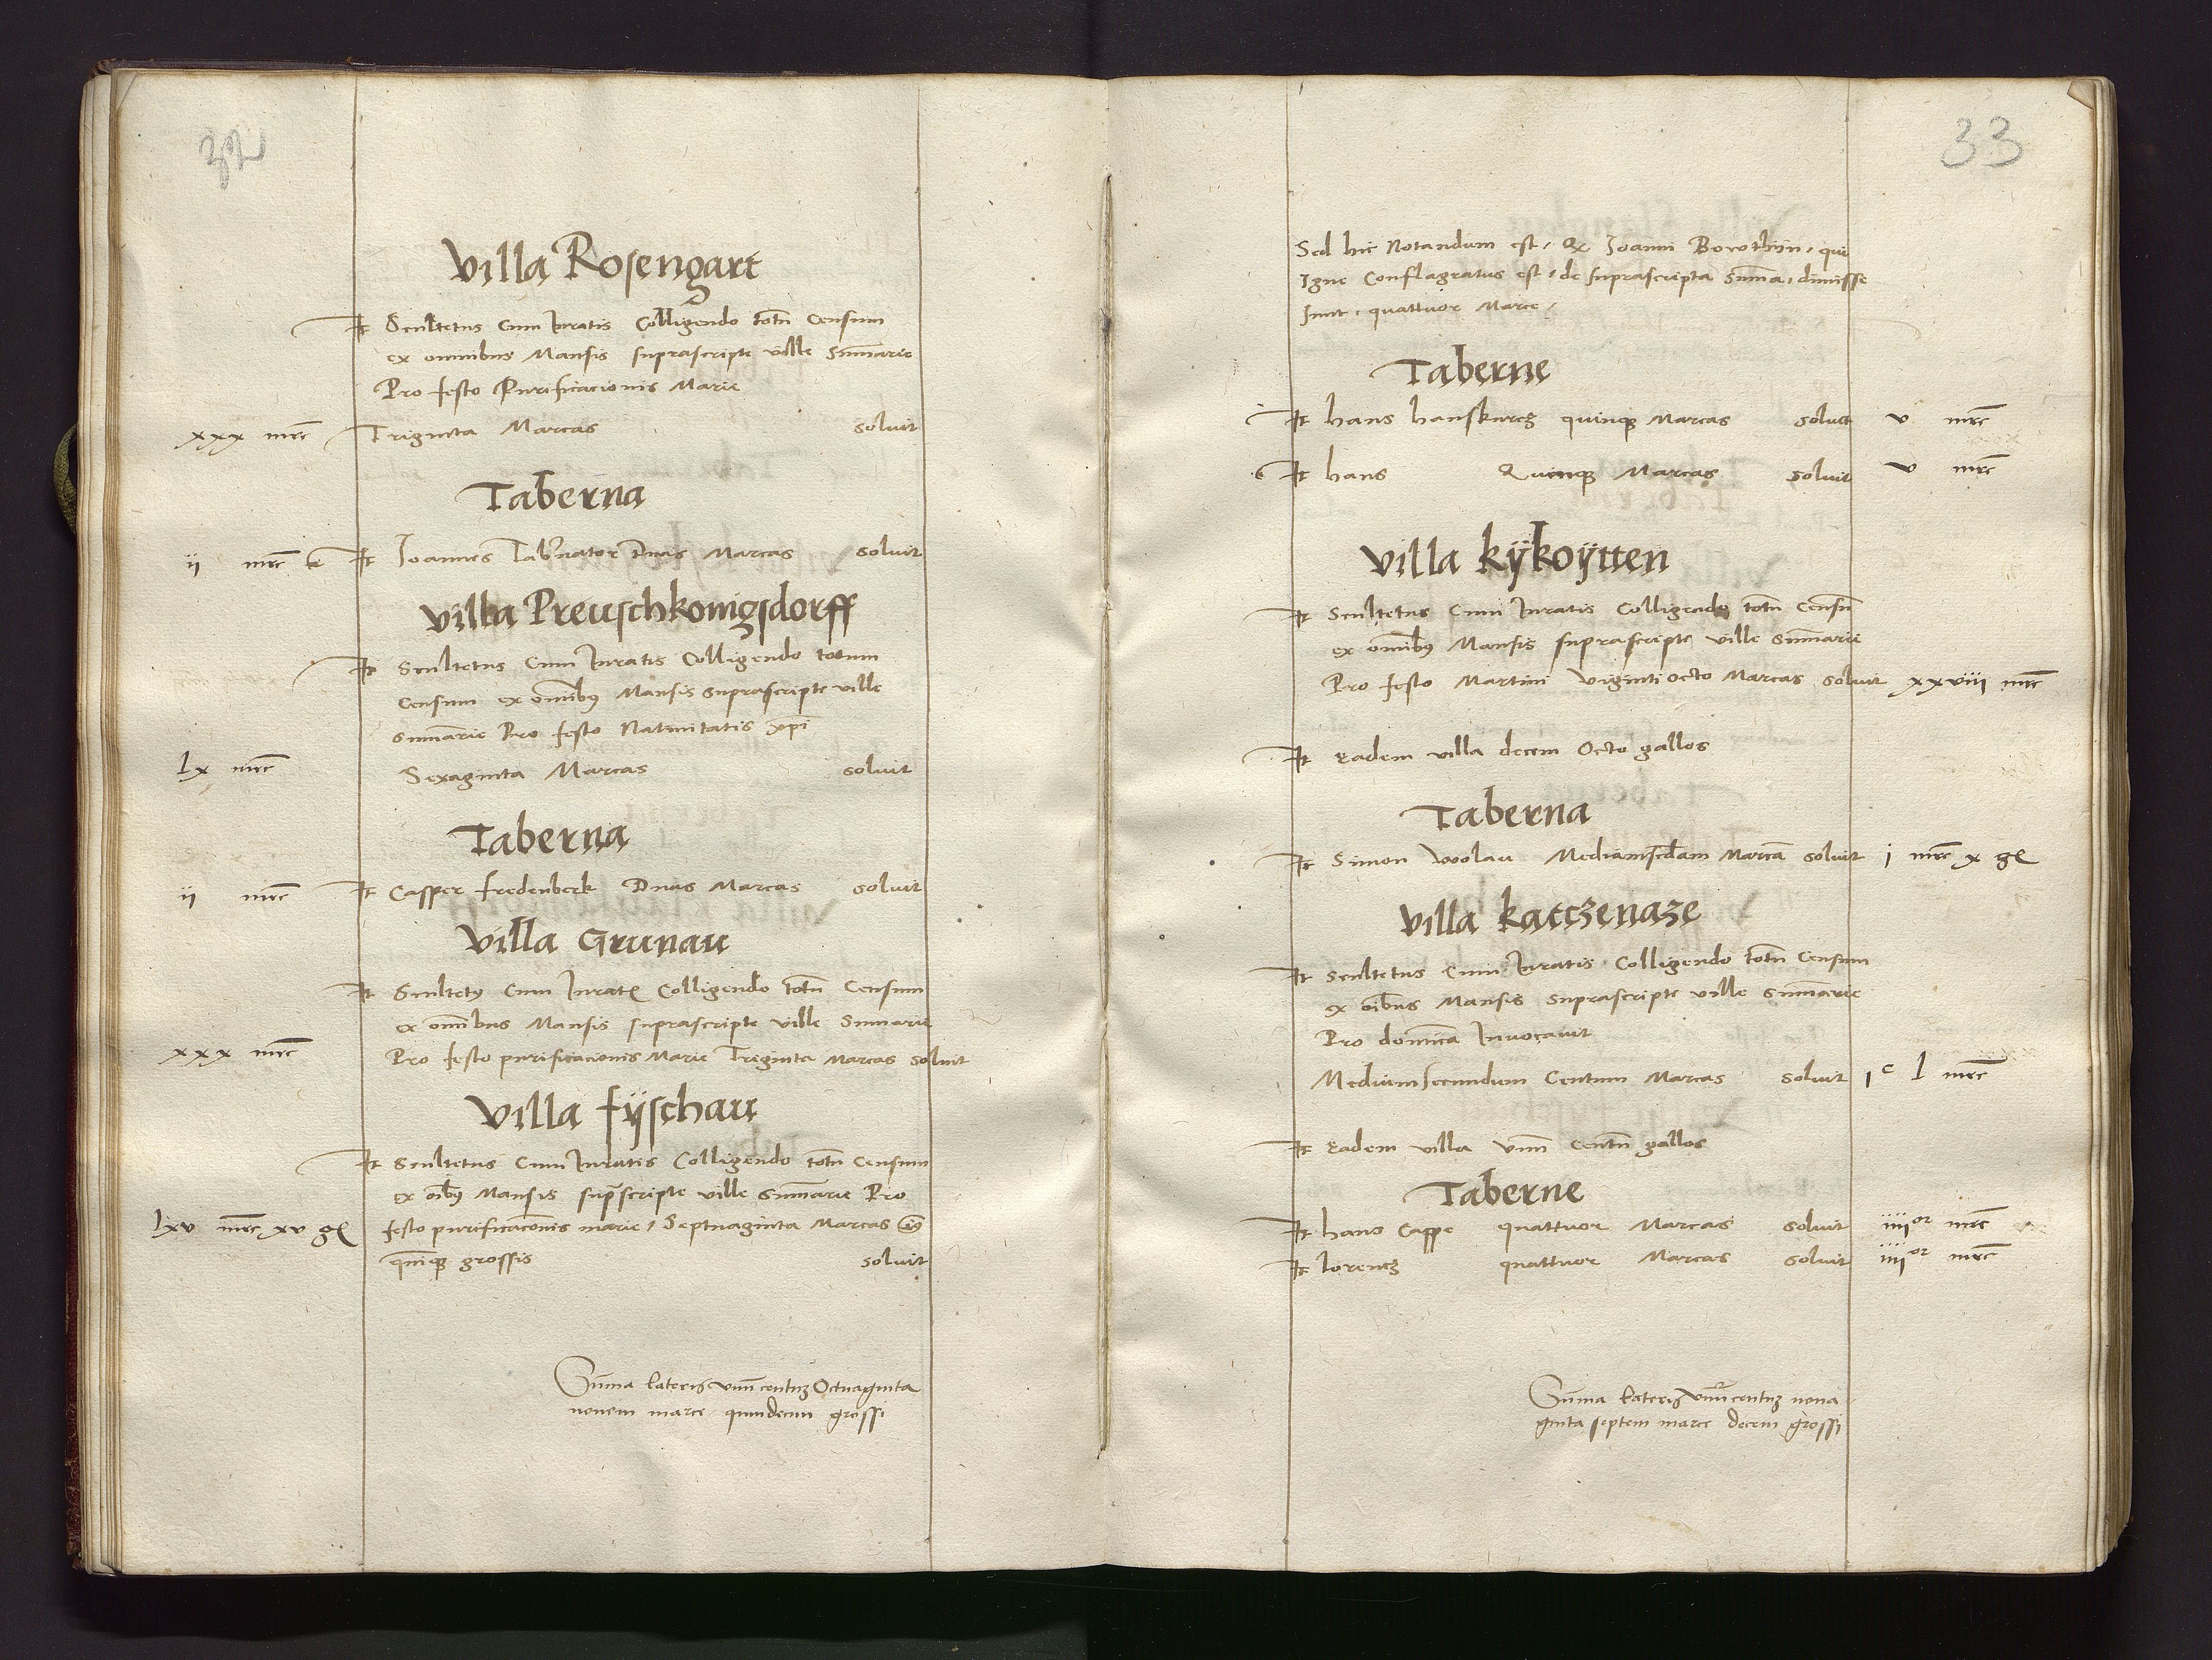 32
Villa Rosengart
It Scultetus Cum Iuratis Colligendo totũ Censum
ex omnibus Mansis suprascripte ville Sum̃arie
Pro festo Purificacionis Marie
xxx mrc Triginta Marcas soluit
Taberna
ii mrc It Joannes Tab'nator Duas Marcas soluit
Villa Preuschkonigsdorff
It Scultetus Cum Iuratis Colligendo totum
Censum ex om̃ibꝰ Mansis suprascripte ville
Sum̃arie Pro festo Natiuitatis xp̃i
lx mrc Sexaginta Marcas soluit
Taberna
ii mrc It Casper fredenberk Duas Marcas soluit
Villa Grunau
It Scultetꝰ Cum Iuratꝭ Colligendo totũ Censum
ex om̃ibus Mansis suprascripte ville Sumarie
xxx mrc Pro festo purificacionis Marie Triginta Marcas soluit
Villa fÿschau
It Scultetus Cum Iuratis Colligendo totũ Censum
ex oĩbꝰ Mansis sup̃scripte ville Sum̃arie Pro
lxv mrc xv gꝭ festo purificac̃onis marie / Septuaginta Marcas
quĩqꝫ grossis soluit
Sum̃a lateris vnũcentuꝫ Octuaginta
nouem marce quindecim grossi
33
Sed hic Notandum est / Qꝫ Joanni Bowthin · qui
Igne Conflagratus est / de suprascripta Sum̃a · dimisse
sunt · quattuor Marce /
Taberne
It hans hanskurcꝫ quinqꝫ Marcas soluit v mrc
It hans Quinqꝫ Marcas soluit v mrc
Villa kÿkoÿtten
It Scultetus Cum Iuratis Colligendo totũ Censũ
ex om̃ibꝰ Mansis suprascripte ville Sum̃arie
Pro festo Martini viginti octo Marcas soluit xxviii mrc
It Eadem villa decem Octo gallos
Taberna
It Simon wolau Mediamsc̃dam Marcã soluit i mrc x gꝭ
Villa katczenaze
It Scultetus Cum Iuratis Colligendo totũ Censum
ex oĩbus Mansis suprascripte ville Sum̃arie
Pro dom̃ica Inuocauit
Mediumsecundum Centum Marcas soluit iᶜ l mrc
It Eadem villa vnũ centũ gallos
Taberne
It hans Cappe quattuor Marcas soluit iiiiᵒʳ mrc
It lorencꝫ quattuor Marcas soluit iiiiᵒʳ mrc
Sum̃a lateris vnũcentuꝫ nona
ginta septem marce decem grossi